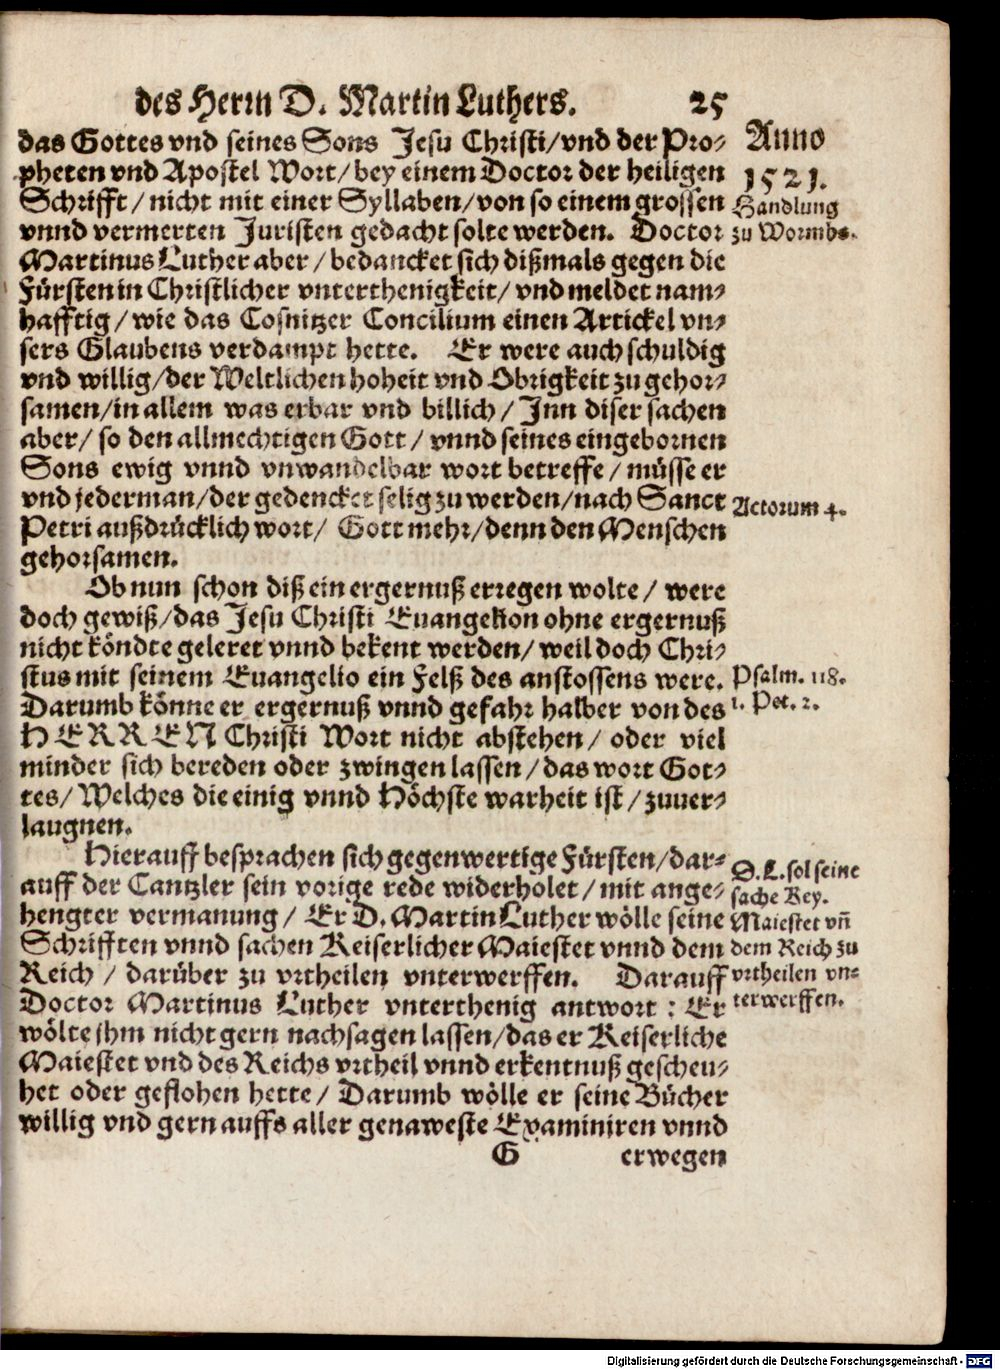 des Herrn D. Martin Luthers. 25
das Gottes vnd seines Sons Jesu Christi/vnd der Pro-
pheten vnd Apostel Wort/bey einem Doctor der heiligen
Schrifft/nicht mit einer Syllaben/von so einem grossen
vnnd vermerten Juristen gedacht solte werden. Doctor
Martinus Luther aber/bedancket sich dißmals gegen die
Fürsten in Christlicher vnterthenigkeit/vnd meldet nam-
hafftig/wie das Cosnitzer Concilium einen Artickel vn-
sers Glaubens verdampt hette. Er were auch schuldig
vnd willig/der Weltlichen hoheit vnd Obrigkeit zu gehor-
samen/in allem was erbar vnd billich/Inn diser sachen
aber/so den allmechtigen Gott/vnnd seines eingebornen
Sons ewig vnnd vnwandelbar wort betreffe/müsse er
vnd jederman/der gedencket selig zu werden/nach Sanct
Petri außdrücklich wort/Gott mehr/denn den Menschen
gehorsamen.
Ob nun schon diß ein ergernuß erregen wolte/were
doch gewiß/das Jesu Christi Euangelion ohne ergernuß
nicht köndte geleret vnnd bekent werden/weil doch Chri-
stus mit seinem Euangelio ein Felß des anstossens were.
Darumb könne er ergernuß vnnd gefahr halber von des
HERREN Christi Wort nicht abstehen/oder viel
minder sich bereden oder zwingen lassen/das wort Got-
tes/Welches die einig vnnd Höchste warheit ist/zuuer-
laugnen.
Hierauff besprachen sich gegenwertige Fürsten/dar-
auff der Cantzler sein vorige rede widerholet/mit ange-
hengter vermanung/Er D. Martin Luther wölle seine
Schrifften vnnd sachen Keiserlicher Maiestet vnnd dem
Reich/darüber zu vrtheilen vnterwerffen. Darauff
Doctor Martinus Luther vnterthenig antwort: Er
wölte jhm nicht gern nachsagen lassen/das er Keiserliche
Maiestet vnd des Reichs vrtheil vnnd erkentnuß gescheu-
het oder geflohen hette/Darumb wölle er seine Bücher
willig vnd gern auffs aller genaweste Examiniren vnnd
G erwegen
Anno
1521.
Handlung
zu Wormbs.
Actorum 4.
Psalm. 118.
1. Pet. 2.
D. L. sol seine
sache Key.
Maiestet vñ
dem Reich zu
vrtheilen vn-
terwerffen.
Digitalisierung gefördert durch die Deutsche Forschungsgemeinschaft - DFG